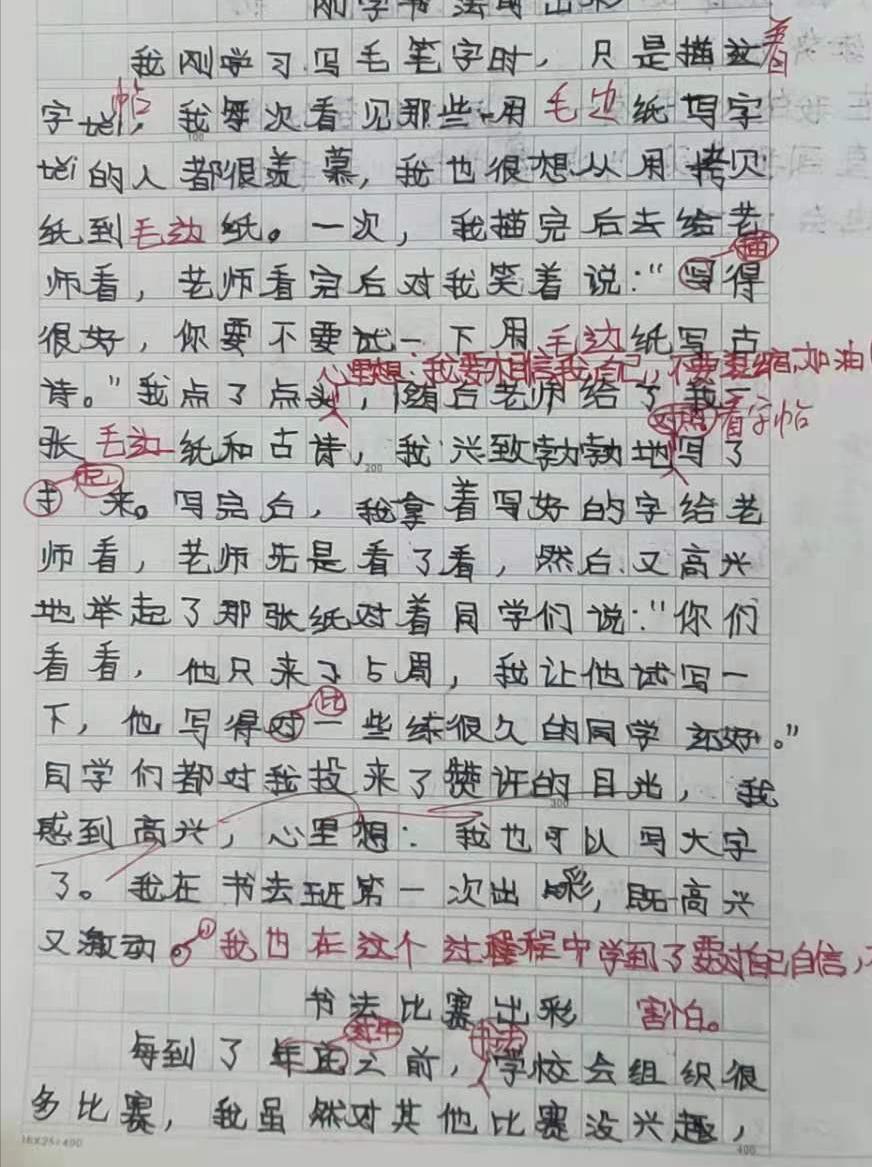 刚学书法时出彩
我刚学习写毛笔字时，只是描这着
字tèi，帖我每次看见那些用毛边纸写字
tèi的人都很羡慕，我也很想从用拷贝
纸到毛边纸。一次，我描完后去给老
师看，老师看完后对我笑着说：“写描得
很好，你要不要试一下用毛边纸写古
心里想：我要相信我自己，不要退缩，加油
诗。”我点了点头，随后老师给了我一
对照看字帖
张毛边纸和古诗，我兴致勃勃地写了
起来。写完后，我拿着写好的字给老
师看，老师先是看了看，然后又高兴
地举起了那张纸对着同学们说：“你们
看看，他只来了5周，我让他试写一
下，他写得对比一些练很久的同学还好。”
同学们都对我投来了赞许的目光，我
300
感到高兴，心里想：我也可以写大字
了。我在书法班第一次出彩，既高兴
又激动。，我也在这个过程中学到了要对自己自信，不
害怕。
书法比赛出彩
每到了年底红牛之前，书法学校会组织很
多比赛，我虽然对其他比赛没兴趣，
16X25=400
400